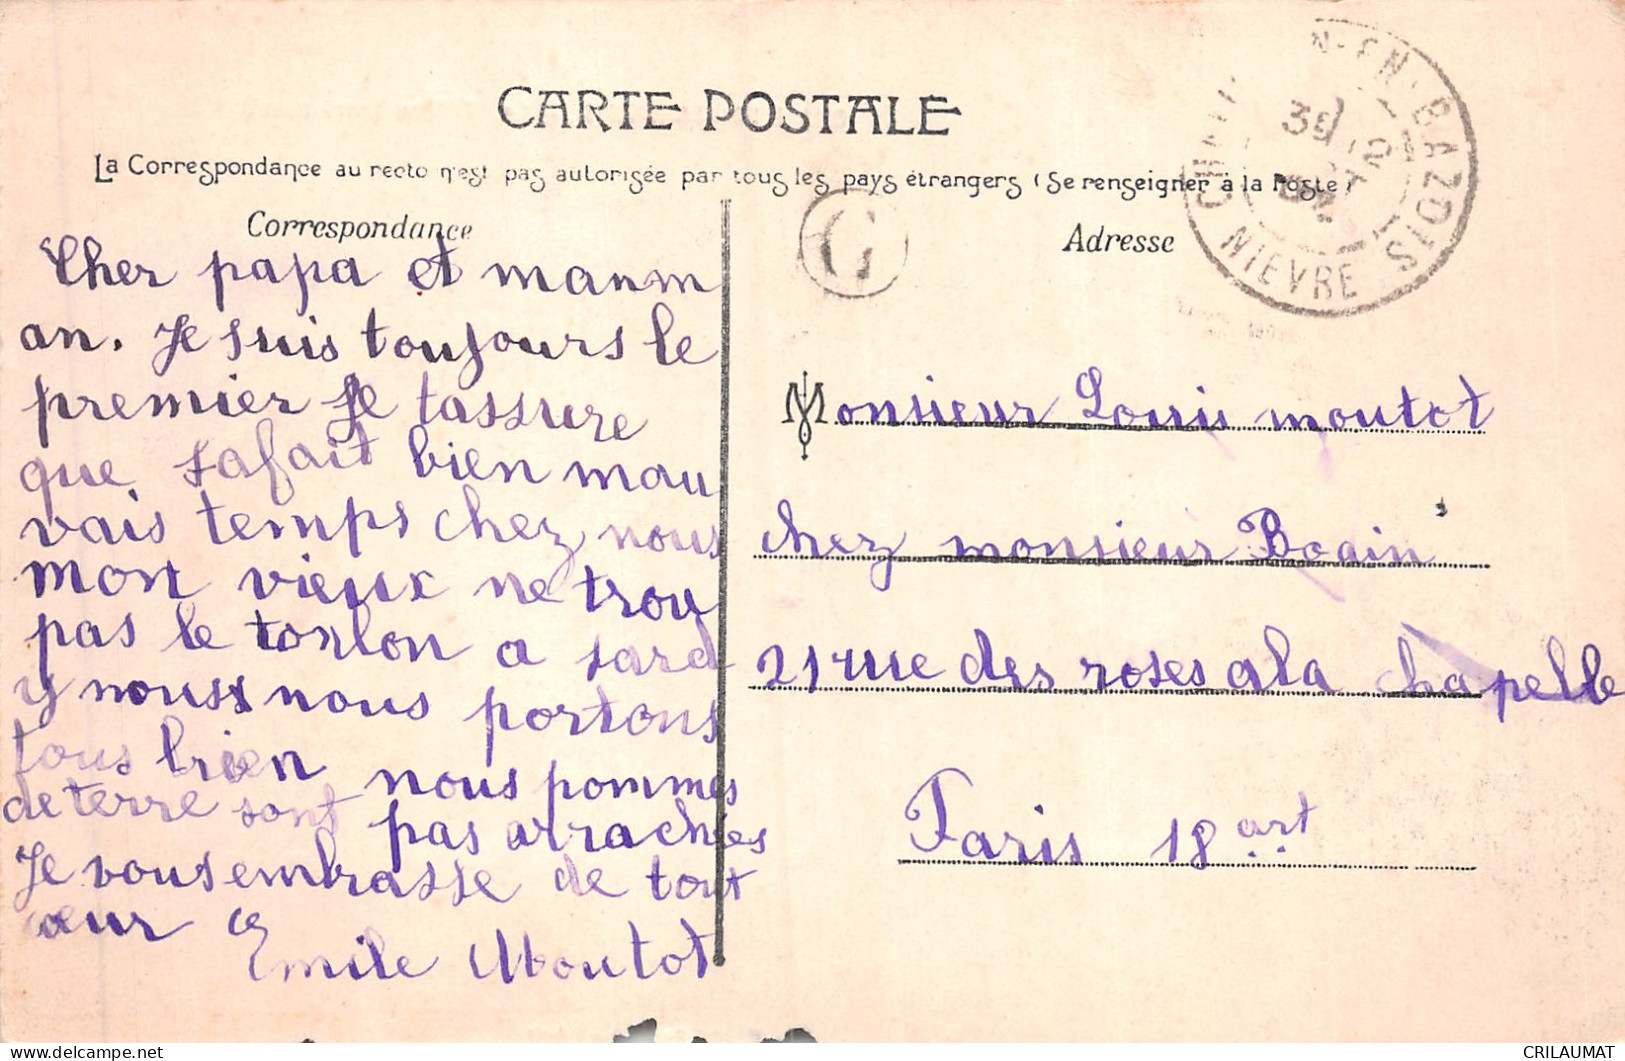 CARTE POSTALE
La Correspondance au recto n'est pas autorisée par tous les pays étrangers (Se renseigner à la Poste)
Correspondance
Cher papa et manm
an. Je suis toujours le
premier Je tassure
que safait bien mau
vais temps chez nous
mon vieux ne trou
pas le tonlon a sard
y nous nous portons
tous bien nous pommes
de terre sont pas arrachées
Je vous embrasse de tout
cœur
Emile Moutot
G
Adresse
N-EN-BAZOIS
NIEVRE
Monsieur Louis moutot
chez monsieur
21 rue des roses a la chapelle
Paris 18 art
CRILAUMAT